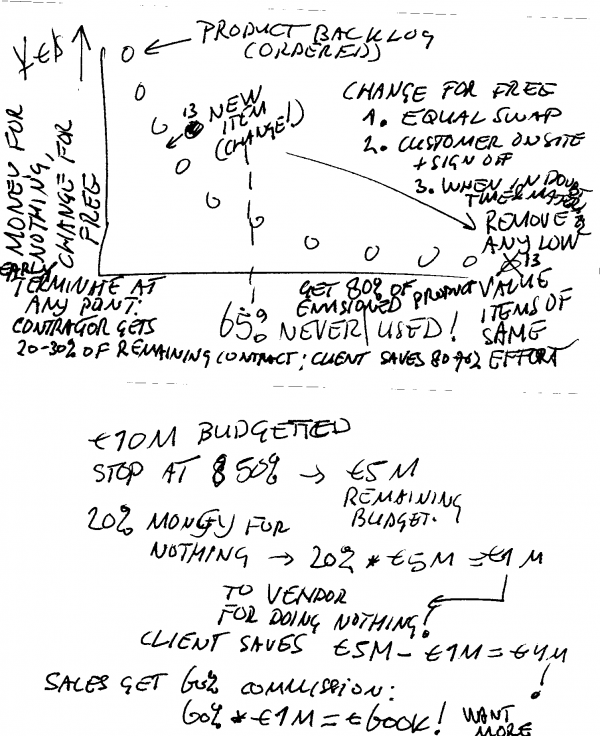 ¥€$
MONEY FOR
NOTHING,
CHANGE FOR
FREE
PRODUCT BACKLOG
(ORDERED)
13 NEW
ITEM
(CHANGE!)
CHANGE FOR FREE
1. EQUAL SWAP
2. CUSTOMER ONSITE
+ SIGN OFF
3. WHEN IN DOUBT
REMOVE
ANY LOW
13
VALUE
ITEMS OF
SAME
EFFORT
EARLY
TERMINATE AT
ANY POINT:
CONTRACTOR GETS
20-30% OF REMAINING CONTRACT; CLIENT SAVES
GET 80% OF
ENVISIONED PRODUCT
65% NEVER USED!
€10M BUDGETTED
STOP AT 50% → €5M
REMAINING
BUDGET.
20% MONEY FOR
NOTHING → 20% * €5M = €1M
TO VENDOR
FOR DOING NOTHING!
CLIENT SAVES €5M - €1M = €4M
!
SALES GET 60% COMMISSION:
60% * €1M = €600K! WANT
MORE